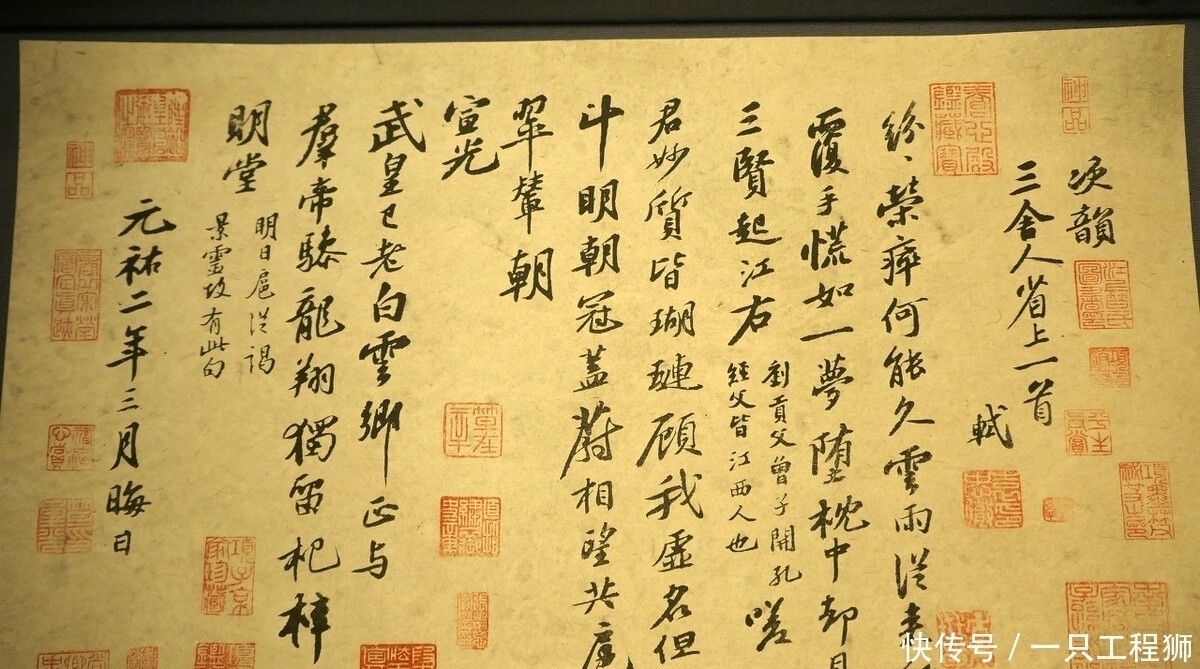 次韻
三舍人省上一首
軾
紛〻榮瘁何能久雲雨從来
覆手慌如一夢堕枕中却見
三賢起江右
劉貢父曾子開孔
經父皆江西人也
嗟
君妙質皆瑚璉顧我虛名但
斗明朝冠蓋蔚相望共扈
翠輦朝
宣光
武皇已老白雲鄉正与
羣帝驂龍翔獨留杞梓
明堂
明日扈從謁
景靈故有此句
元祐二年三月晦日
神品
養心殿鑑藏寶
神品
項子京家珍藏
快传号 / 一只工程狮